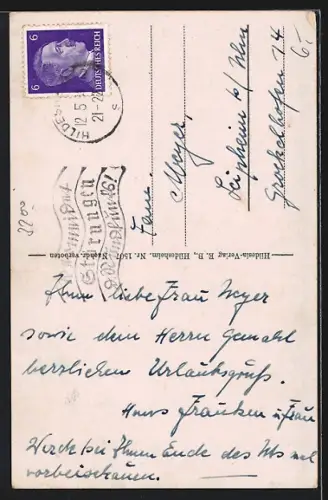 6
6
DEUTSCHES REICH
HILDES
12.5
21-22
s
Störungen
3200
Fam.
Meyer,
Leipheim b/ Ulm
Grockelhofen 74
Hildesia-Verlag E. B., Hildesheim. Nr. 1501 Nachdr. verboten
Ihnen liebe Frau Meyer
sowie dem Herrn Gemahl
herzlichen Urlaubsgruß.
Hans Franken u. Frau
Werde bei Ihnen Ende des Mts mal
vorbeischauen.